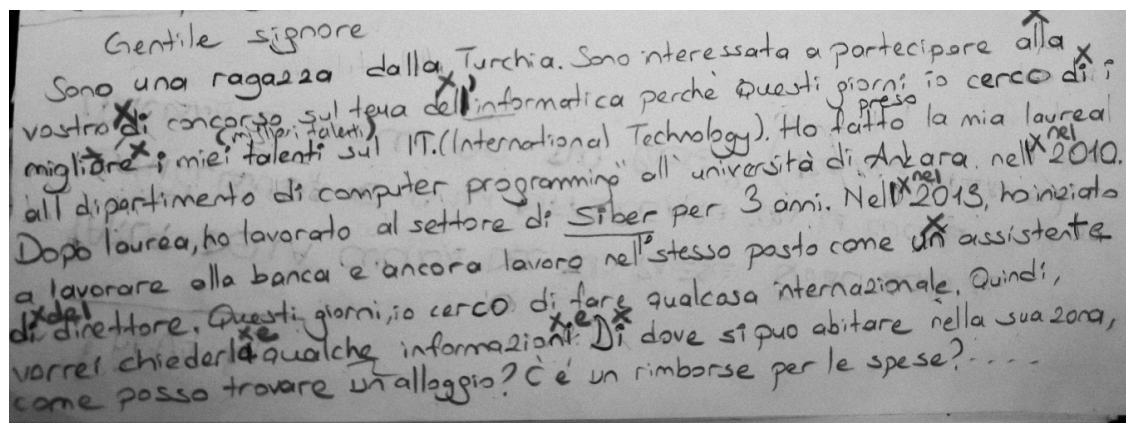 Gentile signore
Sono una ragazza dalla Turchia. Sono interessata a partecipare alla
vostro di concorso sul tema dell'informatica perchè Questi giorni io cerco di i
migliore i miei (migliori talenti) talenti sul IT.(International Technology). Ho fatto preso la mia laurea
all dipartimento di computer programming all'università di Ankara, nell nel 2010.
Dopo laurea, ho lavorato al settore di Siber per 3 anni. Nell nel 2013, ho iniziato
a lavorare alla banca e ancora lavoro nell'stesso posto come un assistente
di del direttore. Questi giorni, io cerco di fare qualcosa internazionale. Quindi,
vorrei chiederla e qualche informazioni e. Di dove si puo abitare nella sua zona,
come posso trovare un alloggio? C'é un rimborse per le spese?.....